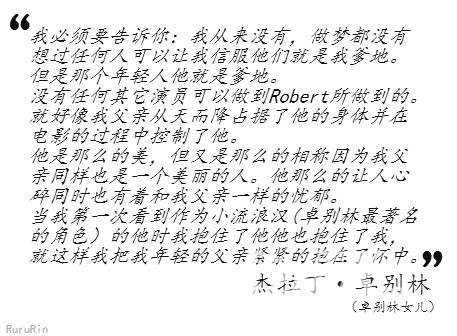 “我必须要告诉你：我从来没有，做梦都没有
想过任何人可以让我信服他们就是我爹地。
但是那个年轻人他就是爹地。
没有任何其它演员可以做到Robert所做到的。
就好像我父亲从天而降占据了他的身体并在
电影的过程中控制了他。
他是那么的美，但又是那么的相称因为我父
亲同样也是一个美丽的人。他那么的让人心
碎同时也有着和我父亲一样的忧郁。
当我第一次看到作为小流浪汉(卓别林最著名
的角色）的他时我抱住了他他也抱住了我，
就这样我把我年轻的父亲紧紧的抱在了怀中。”
杰拉丁·卓别林
（卓别林女儿）
RuruRin